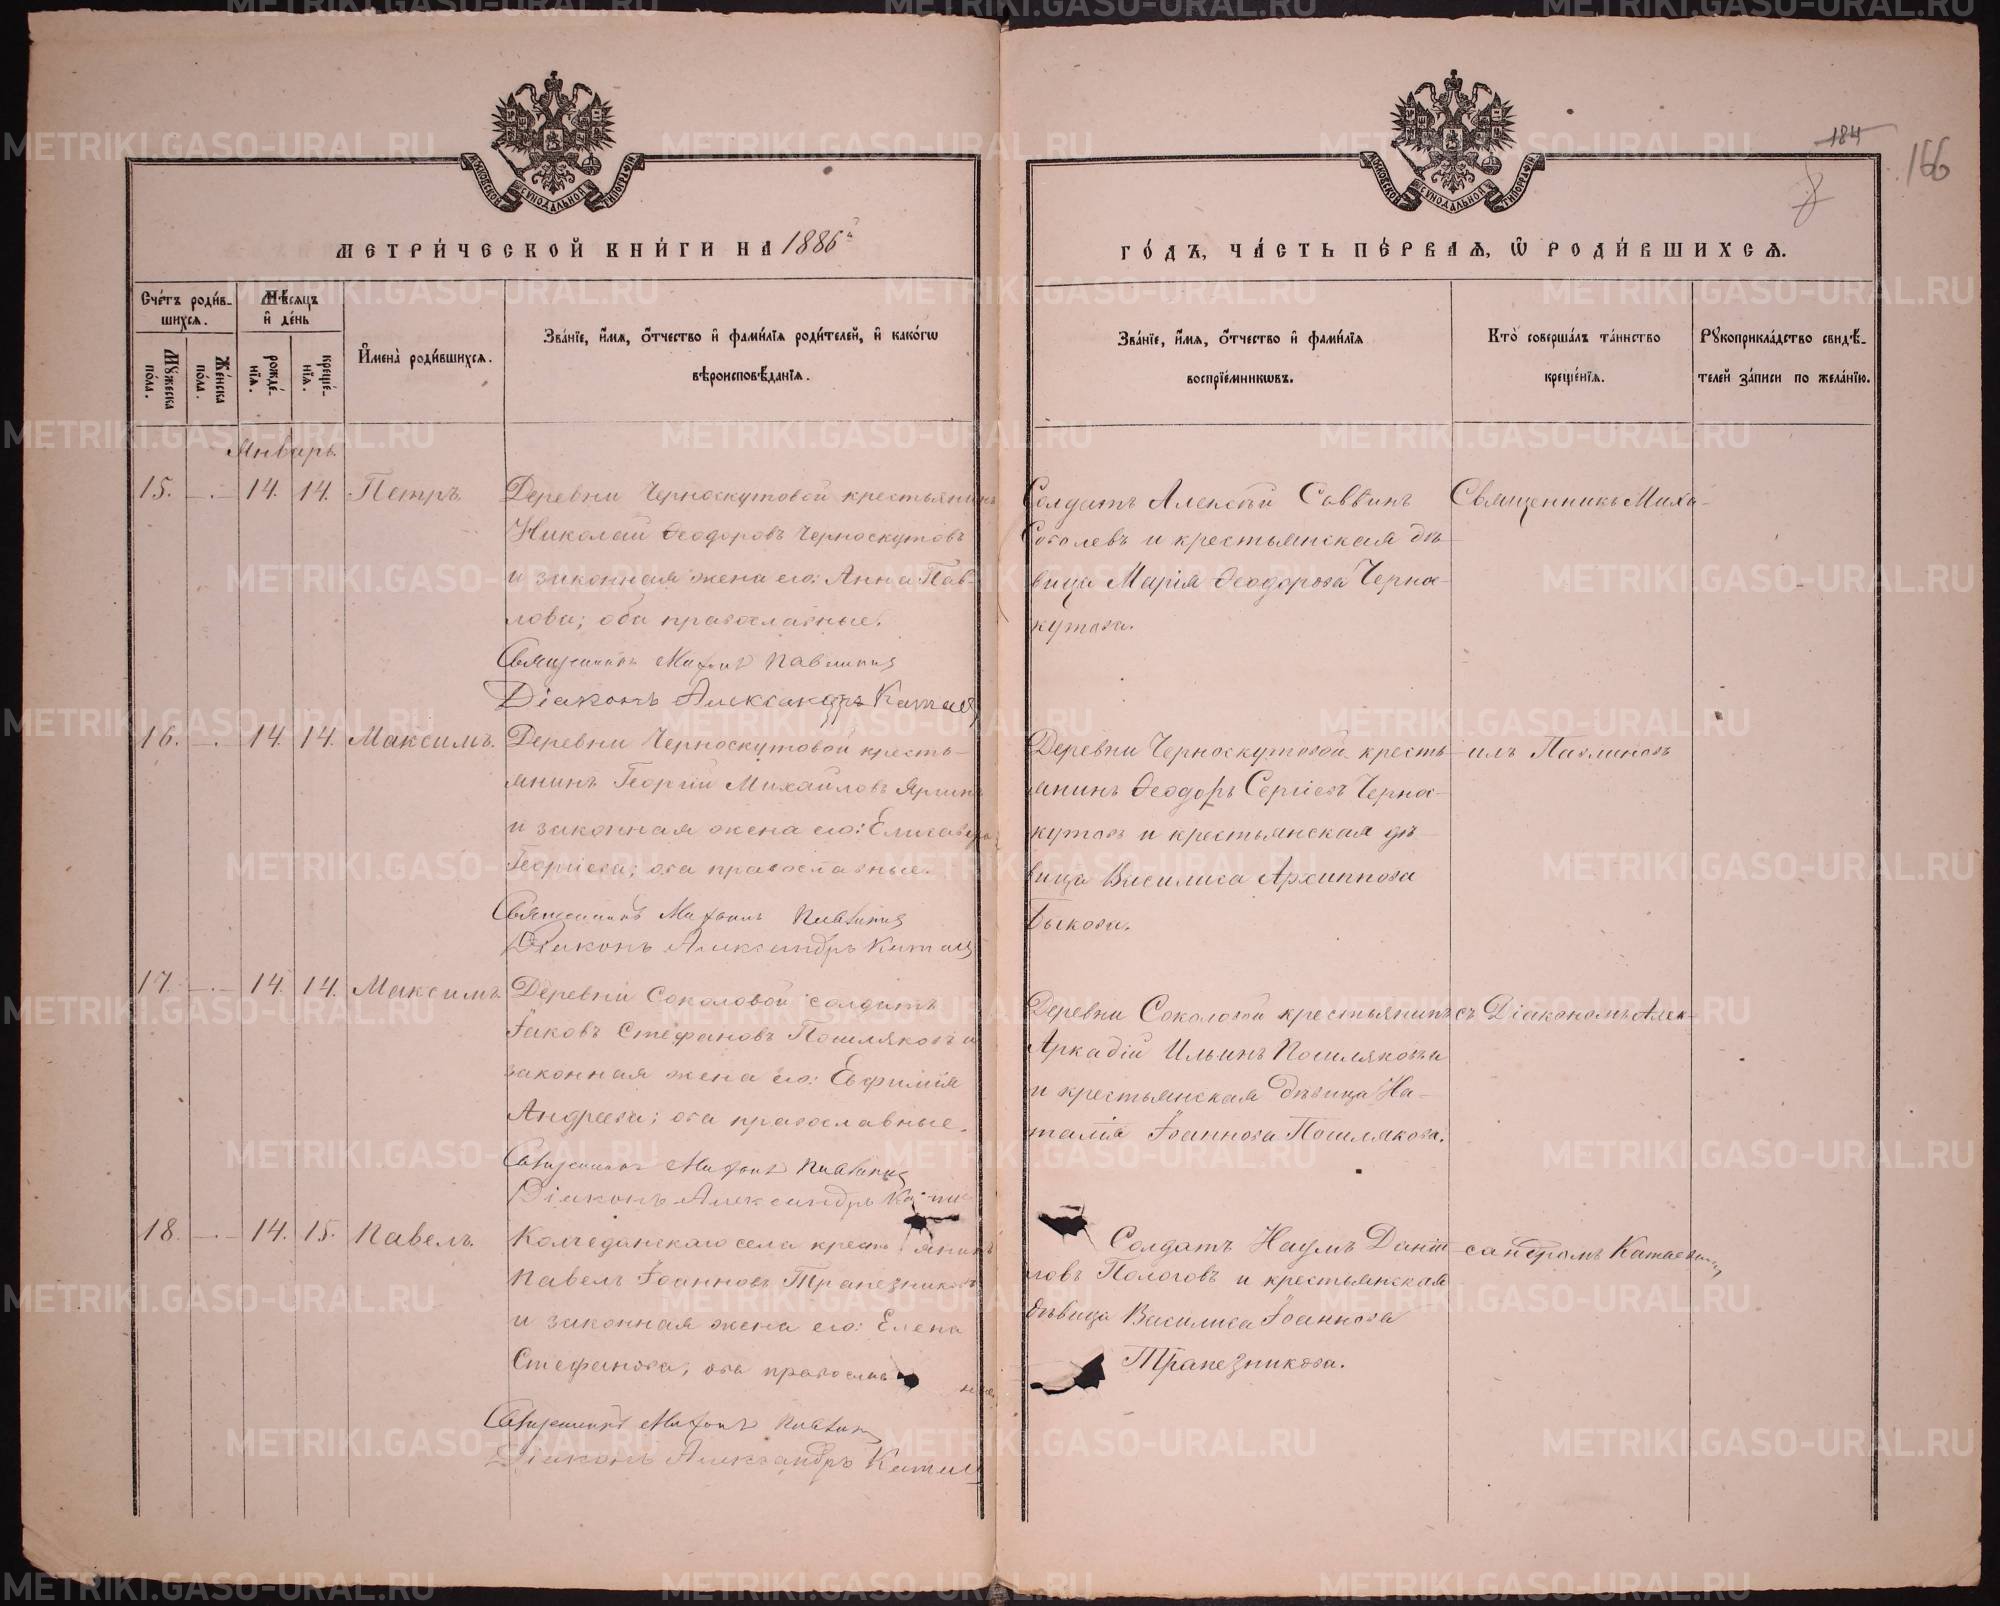 184
166
МОСКОВСКОЙ СѴНОДАЛЬНОЙ ТИПОГРАФІИ
МОСКОВСКОЙ СѴНОДАЛЬНОЙ ТИПОГРАФІИ
МЕТРИ́ЧЕСКОЙ КНИ́ГИ НА 1886й
ГО́ДЪ, ЧА́СТЬ ПЕ́РВАѦ, Ѡ РОДИ́ВШИХСѦ.
Сче́тъ роди́в-
шихсѧ.
Мѣ́сѧцъ
и҆ де́нь
Мꙋжеска по́ла.
Же́нска по́ла.
рожде́-
нїѧ.
креще́-
нїѧ.
И҆мена̀ роди́вшихсѧ.
Зва́нїе, и҆́мѧ, ѻ҆́тчество и҆ фами́лїѧ роди́телей, и҆ како́гѡ
вѣроисповѣ́данїѧ.
Зва́нїе, и҆́мѧ, ѻ҆́тчество и҆ фами́лїѧ
воспрїе́мникѡвъ.
Кто̀ соверша́лъ та́инство
креще́нїѧ.
Рꙋкоприкла́дство свидѣ́-
телей за́писи по жела́нїю.
Январь.
15. — 14. 14. Петръ.
Деревни Черноскутовой крестьянинъ
Николай Ѳеодоровъ Черноскутовъ
и законная жена его: Анна Пав-
лова; оба православные.
Священникъ Михаилъ Павлинов
Діаконъ Александръ Катаев
Солдатъ Алексѣй Саввинъ
Соколевъ и крестьянская дѣ-
вица Марія Ѳеодорова Черно-
кутова.
Священникъ Миха-
16. — 14. 14. Максимъ.
Деревни Черноскутовой кресть-
янинъ Георгій Михайловъ Яринъ
и законная жена его: Елисавета
Георгіева; оба православные.
Священникъ Михаилъ Павлинов
Діаконъ Александръ Катаев
Деревни Черноскутовой кресть-
янинъ Ѳеодоръ Сергіевъ Черно-
кутовъ и крестьянская дѣ-
вица Василиса Архиппова
Быкова.
илъ Павлиновъ
17. — 14. 14. Максимъ.
Деревни Соколовой солдатъ
Іаковъ Стефановъ Пошляковъ и
законная жена его: Евфимія
Андреева; оба православные.
Священникъ Михаилъ Павлинов
Діаконъ Александръ
Деревни Соколовой крестьянинъ
Аркадій Ильинъ Пошляковъ
и крестьянская дѣвица На-
талія Іоаннова Пошлякова.
съ Діакономъ Алек-
18. — 14. 15. Павелъ.
Колчеданскаго села крестьянинъ
Павелъ Іоанновъ Трапезниковъ
и законная жена его: Елена
Стефанова; оба православные.
Священникъ Михаилъ Павлинов
Діаконъ Александръ Катаев
Солдатъ Наумъ Даніи-
ловъ Пологовъ и крестьянская
дѣвица Василиса Іоаннова
Трапезникова.
сандромъ Катаевымъ
METRIKI.GASO-URAL.RU